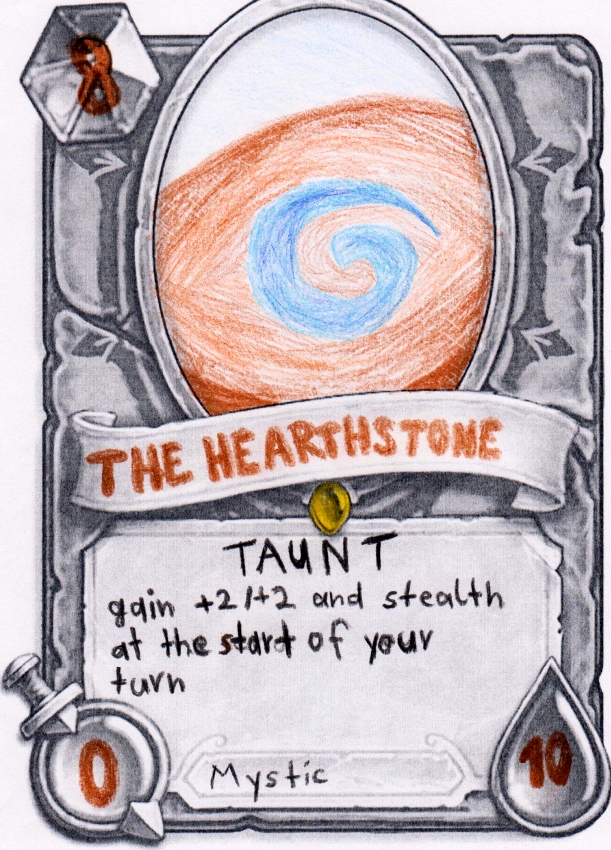 8
THE HEARTHSTONE
TAUNT
gain +2/+2 and stealth
at the start of your
turn
0
Mystic
10